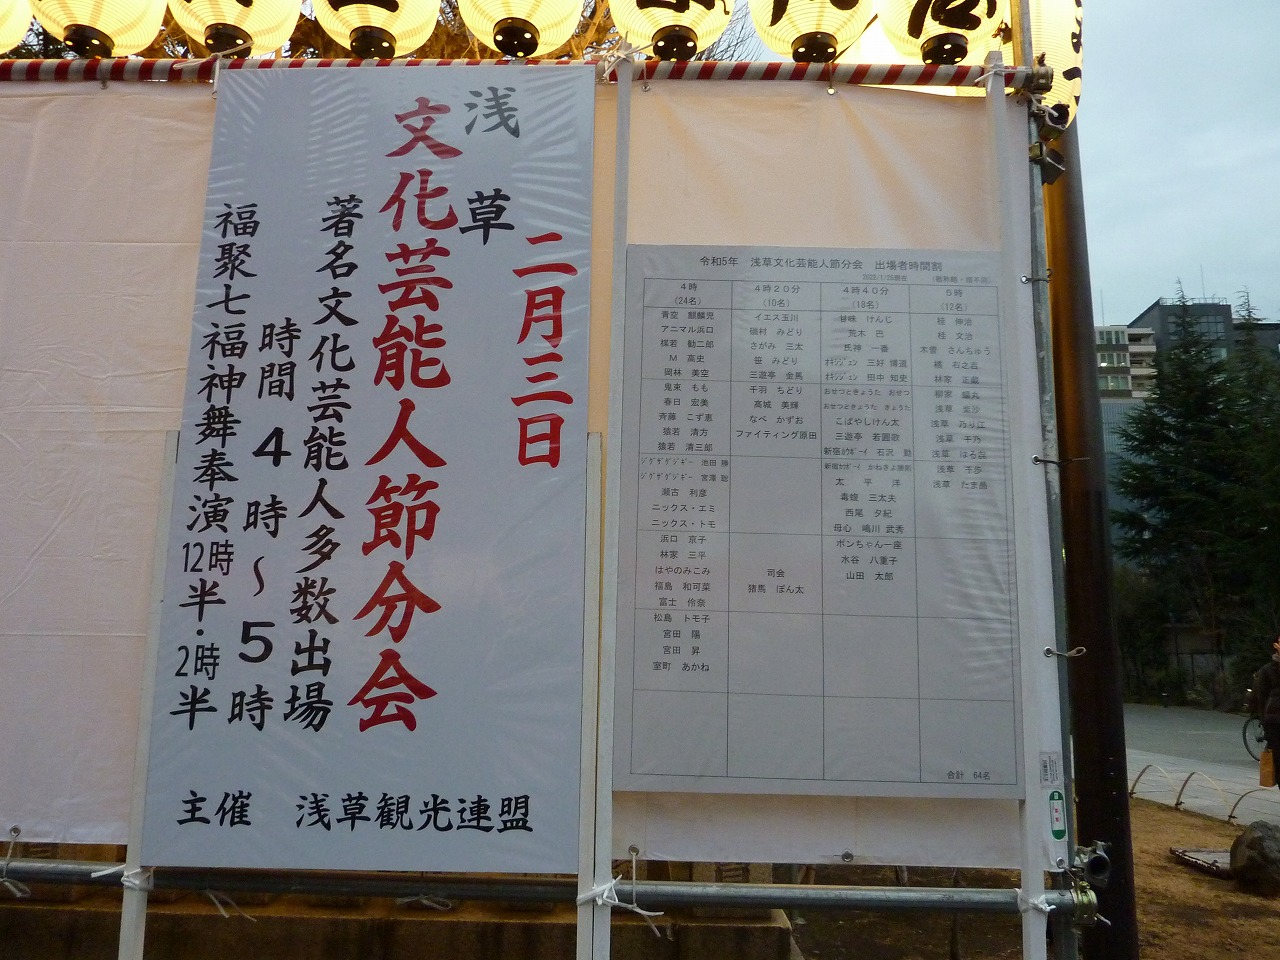 二月三日
浅草
文化芸能人節分会
著名文化芸能人多数出場
時間 4時～5時
福聚七福神舞奉演 12時半・2時半
主催 浅草観光連盟
令和5年 浅草文化芸能人節分会 出場者時間割
(敬称略・順不同)
4時
(24名)
青空 麒麟児
アニマル浜口
M 高史
岡林 美空
鬼束 もも
春日 宏美
斉藤 こず恵
猿若 清方
猿若 清三郎
ジグザグジギー 池田 勝
ジグザグジギー 宮澤 聡
瀬古 利彦
ニックス・エミ
ニックス・トモ
浜口 京子
林家 三平
はやのみこみ
福島 和可菜
富士 伶奈
松島 トモ子
宮田 陽
宮田 昇
室町 あかね
4時20分
(10名)
イエス玉川
磯村 みどり
さがみ 三太
笹 みどり
三遊亭 金馬
千羽 ちどり
高城 美輝
なべ かずお
ファイティング原田
司会
猪馬 ぽん太
4時40分
(18名)
甘味 けんじ
荒木 巴
氏神 一番
オキシジェン 三好 博道
オキシジェン 田中 知史
おせつときょうた おせつ
おせつときょうた きょうた
こばやしけん太
三遊亭 若圓歌
新宿カウボーイ 石沢 勤
新宿カウボーイ かねきよ勝則
太 平 洋
毒蝮 三太夫
西尾 夕紀
母心 嶋川 武秀
ポンちゃん一座
水谷 八重子
山田 太郎
5時
(12名)
桂 伸治
桂 文治
木曽 さんちゅう
橘 右之吉
林家 正蔵
浅草 乃り江
浅草 千乃
浅草 はる菜
浅草 千歩
浅草 たま葉
合計 64名